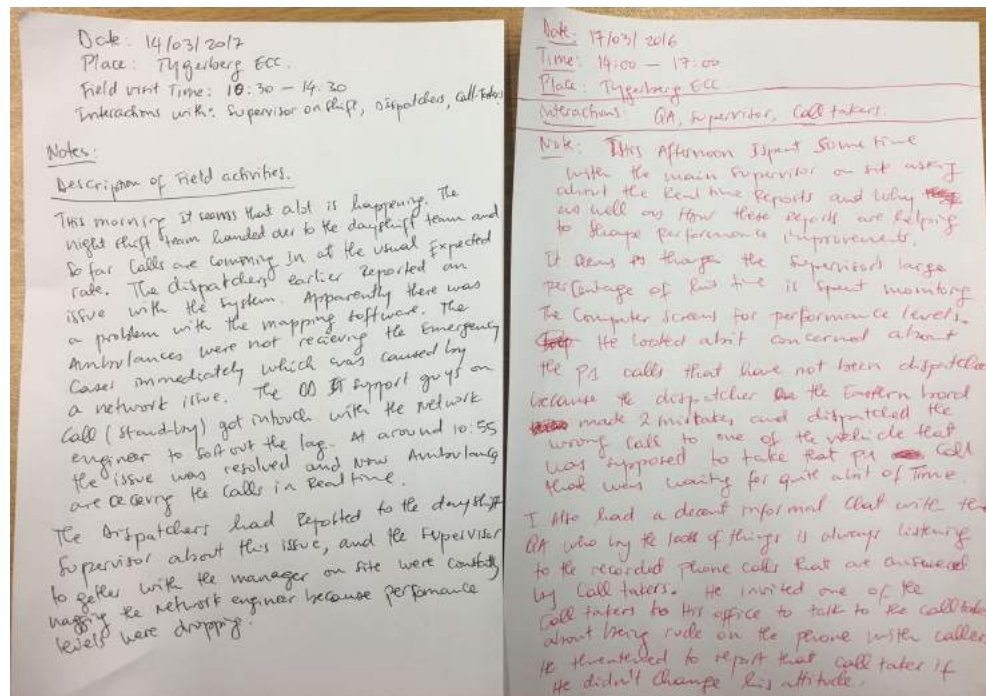 Date: 14/03/2017
Place: Tygerberg ECC.
Field visit Time: 10:30 – 14:30
Interactions with: Supervisor on shift, Dispatchers, Call-Takers
Notes:
Description of Field activities.
This morning It seems that alot is happening. The
night shift team handed over to the dayshift team and
so far calls are comming In at the usual Expected
rate. The dispatchers earlier Reported an
issue with the system. Apparently there was
a problem with the mapping software. The
Ambulances were not recieving the Emergency
Cases immediately which was caused by
a network issue. The IT support guys on
call (stand-by) got intouch with the network
engineer to sort out the lag. At around 10:55
the issue was resolved and Now Ambulances
are recieving the Calls in Real time.
The Dispatchers had Reported to the dayshift
Supervisor about this issue, and the supervisor
together with the manager on site were constantly
nagging the network engineer because performance
levels were dropping.
Date: 17/03/2016
Time: 14:00 – 17:00
Place: Tygerberg ECC
Interactions: QA, supervisor, Call takers.
Note: This Afternoon I spent some time
with the main supervisor on site asking
about the Real time Reports and why
as well as How these Reports are helping
to shape performance improvements.
It seems as though the supervisors large
percentage of his time is spent monitoring
the Computer Screens for performance levels.
He looked abit concerned about
the P1 calls that have not been dispatched
because the dispatcher on the Eastern board
made 2 mistakes and dispatched the
wrong call to one of the vehicle that
was supposed to take that P1 Call
that was waiting for quite abit of Time.
I Also had a decent informal Chat with the
QA who by the look of things is always listening
to the recorded phone calls that are answered
by Call takers. He invited one of the
Call takers to His office to talk to the call taker
about being rude on the phone with caller
He threatened to report that call taker if
He didn't change his attitude.